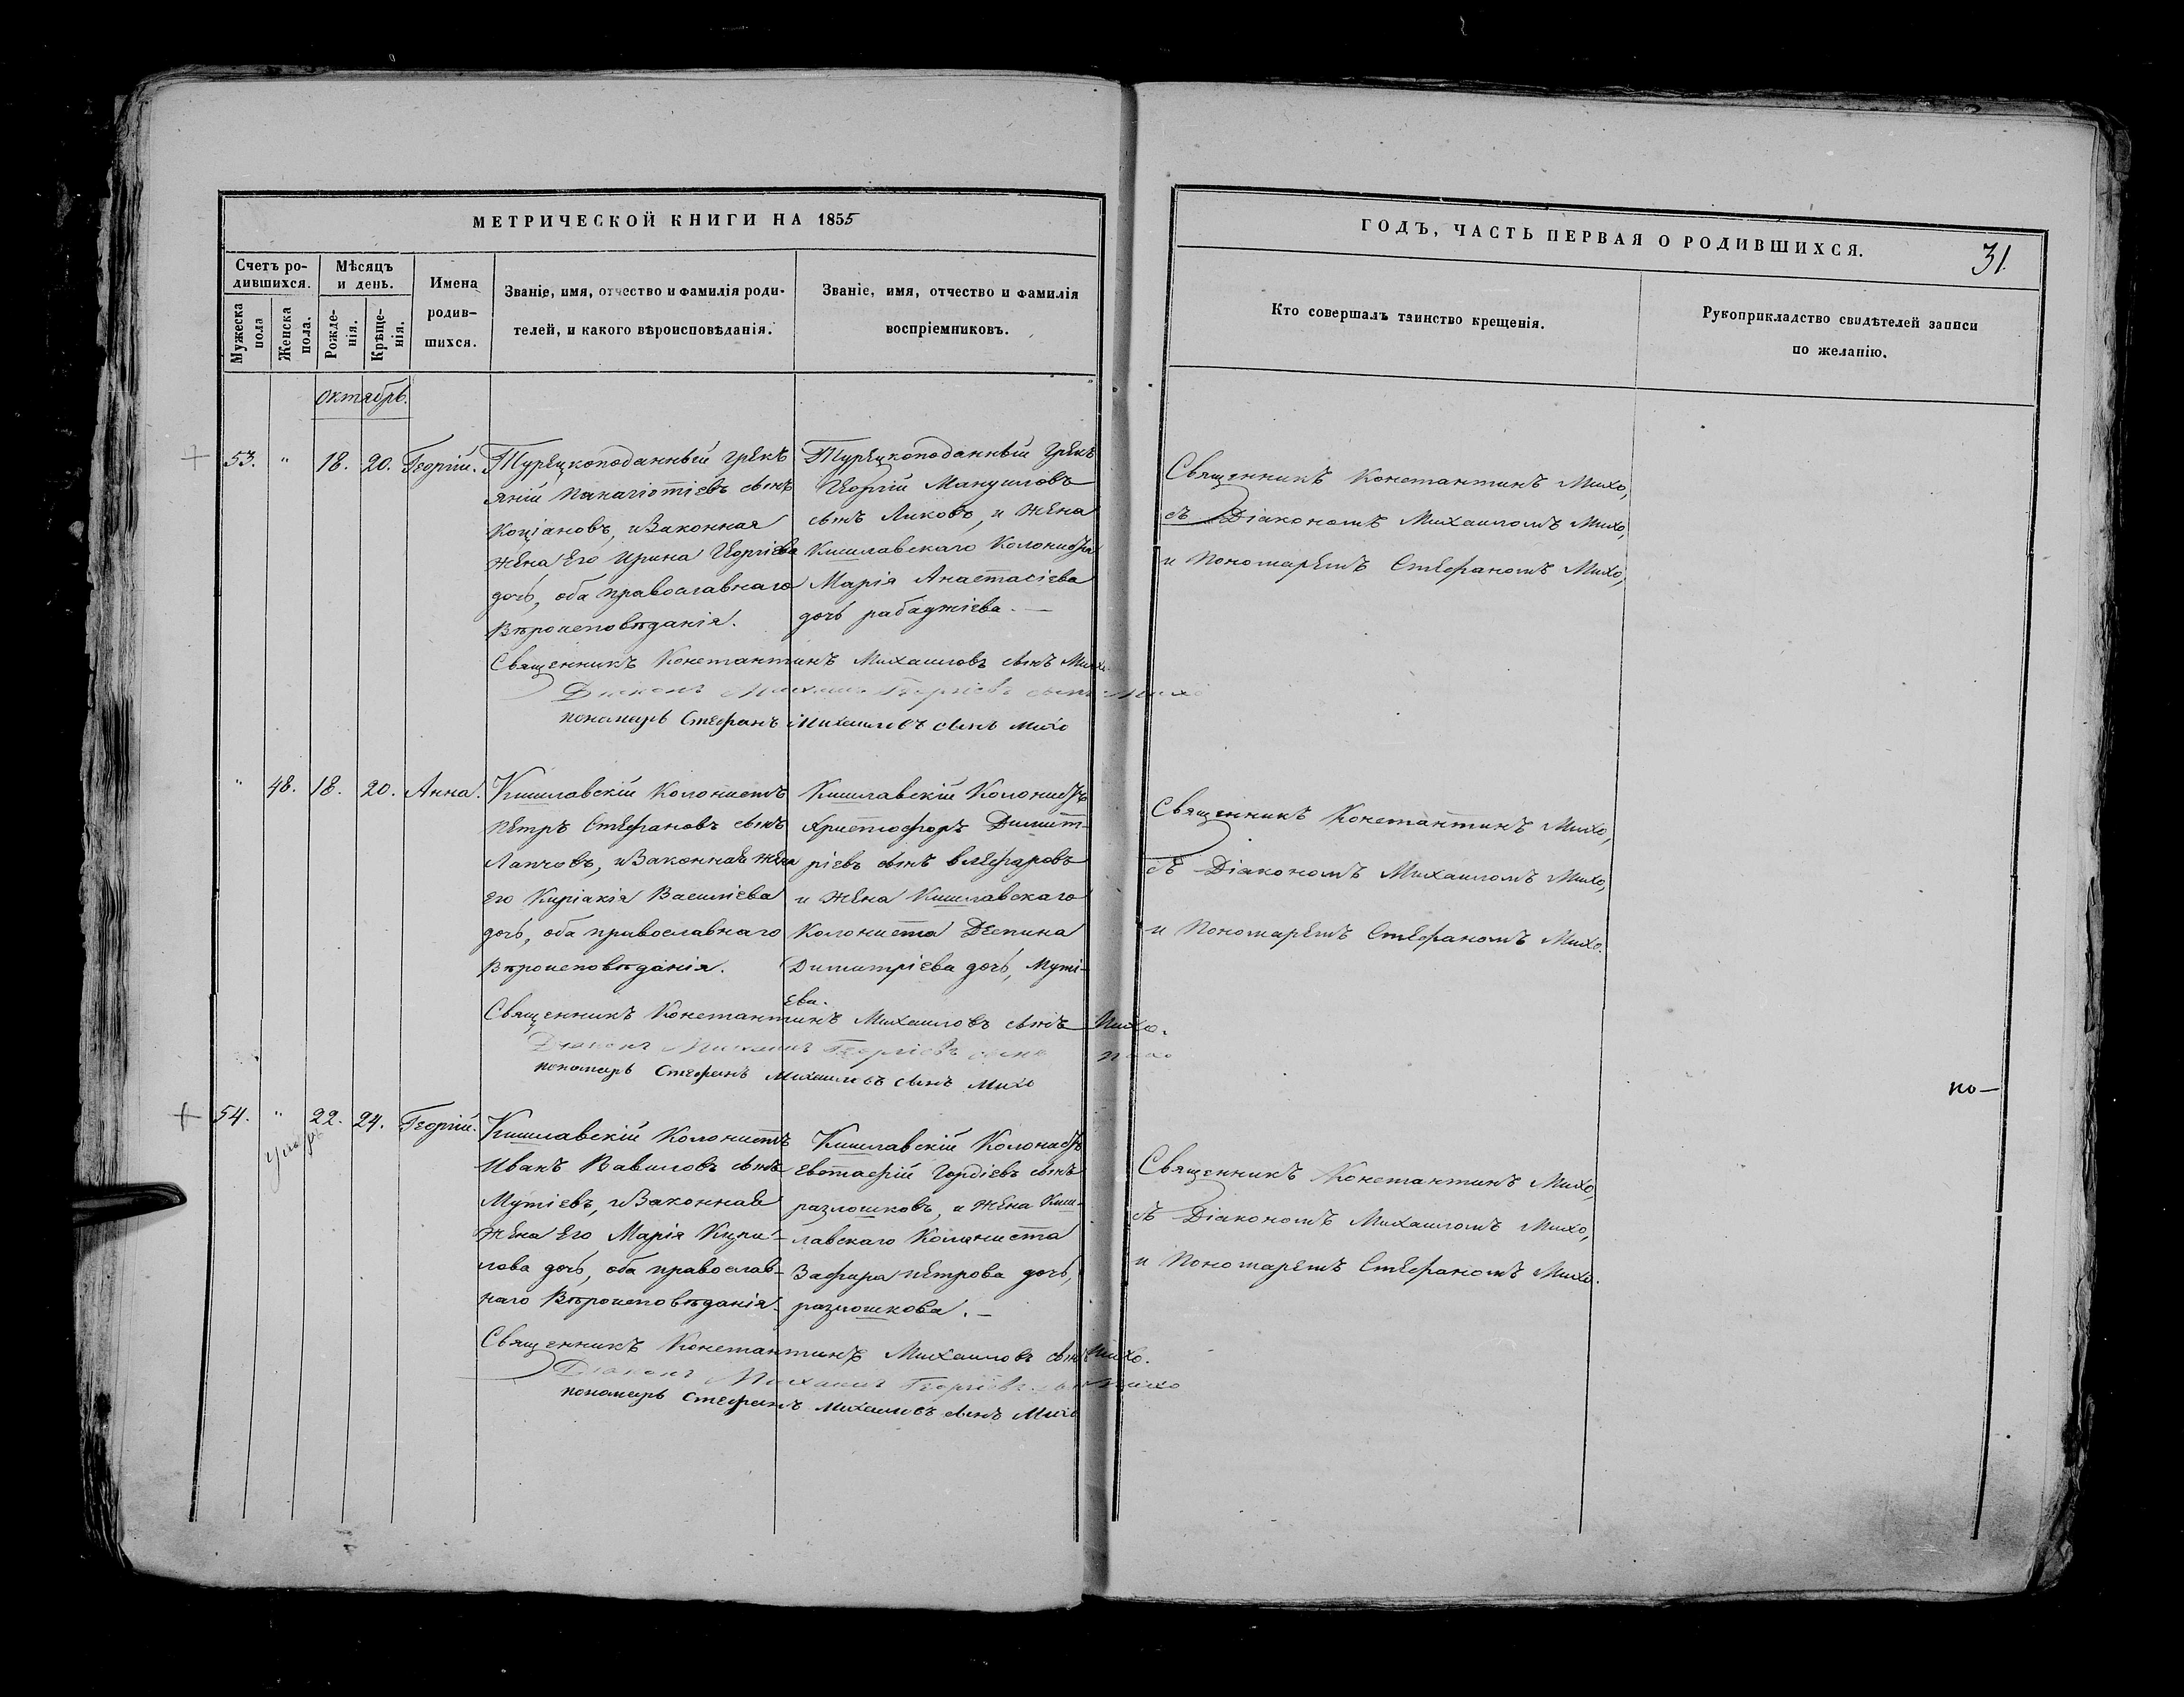 МЕТРИЧЕСКОЙ КНИГИ НА 1855
Счетъ ро-
дившихся.
Мѣсяцъ
и день.
Мужеска
пола
Женска
пола.
Рожде-
нія.
Крѣще-
нія.
Имена
родив-
шихся.
Званіе, имя, отчество и фамилія роди-
телей, и какого вѣроисповѣданія.
Званіе, имя, отчество и фамилія
воспріемниковъ.
октябрь.
53. " 18. 20. Георгій.
Турецкоподанный грекъ
яній Панагіотіевъ сынъ
Коціановъ, и Законная
жена Его Ирина Георгіева
дочь, оба православнаго
Вѣроисповѣданія.
Турецкоподанный грекъ
Георгій Мануиловъ
сынъ Ликовъ, и жена
Кишлавскаго Колониста
Марія Анастасіева
дочь рабаджіева. —
Священникъ Константинъ Михаиловъ сынъ Михо
Діаконъ Михаилъ Георгіевъ сынъ Михо
пономарь Стефанъ Михаиловъ сынъ Михо
" 48. 18. 20. Анна.
Кишлавскій Колонистъ
Петръ Стефановъ сынъ
Лапчовъ, и Законная жена
Его Киріакія Василіева
дочь, оба православнаго
Вѣроисповѣданія.
Кишлавскій Колонистъ
Христофоръ Димит-
ріевъ сынъ
и жена Кишлавскаго
Колониста Деспина
Димитріева дочь, Муті-
ева.
Священникъ Константинъ Михаиловъ сынъ Михо.
Діаконъ Михаилъ Георгіевъ сынъ Михо
пономарь Стефанъ Михаиловъ сынъ Михо
54. " 22. 24. Георгій.
Кишлавскій Колонистъ
Иванъ Вавиловъ сынъ
Мутіевъ, и Законная
жена Его Марія Кири-
лова дочь, оба православ-
наго Вѣроисповѣданія.
Кишлавскій Колонистъ
Евстафій Гордіевъ сынъ
разлошковъ, и жена Киш-
лавскаго Колониста
Зафира Петрова дочь,
разлошкова. —
Священникъ Константинъ Михаиловъ сынъ Михо.
Діаконъ Михаилъ Георгіевъ сынъ Михо
пономарь Стефанъ Михаиловъ сынъ Михо
ГОДЪ, ЧАСТЬ ПЕРВАЯ О РОДИВШИХСЯ.
31.
Кто совершалъ таинство крещенія.
Рукоприкладство свидѣтелей записи
по желанію.
Священникъ Константинъ Михо,
съ Діакономъ Михаиломъ Михо,
и Пономаремъ Стефаномъ Михо,
Священникъ Константинъ Михо,
съ Діакономъ Михаиломъ Михо,
и Пономаремъ Стефаномъ Михо.
по —
Священникъ Константинъ Михо,
съ Діакономъ Михаиломъ Михо,
и Пономаремъ Стефаномъ Михо.